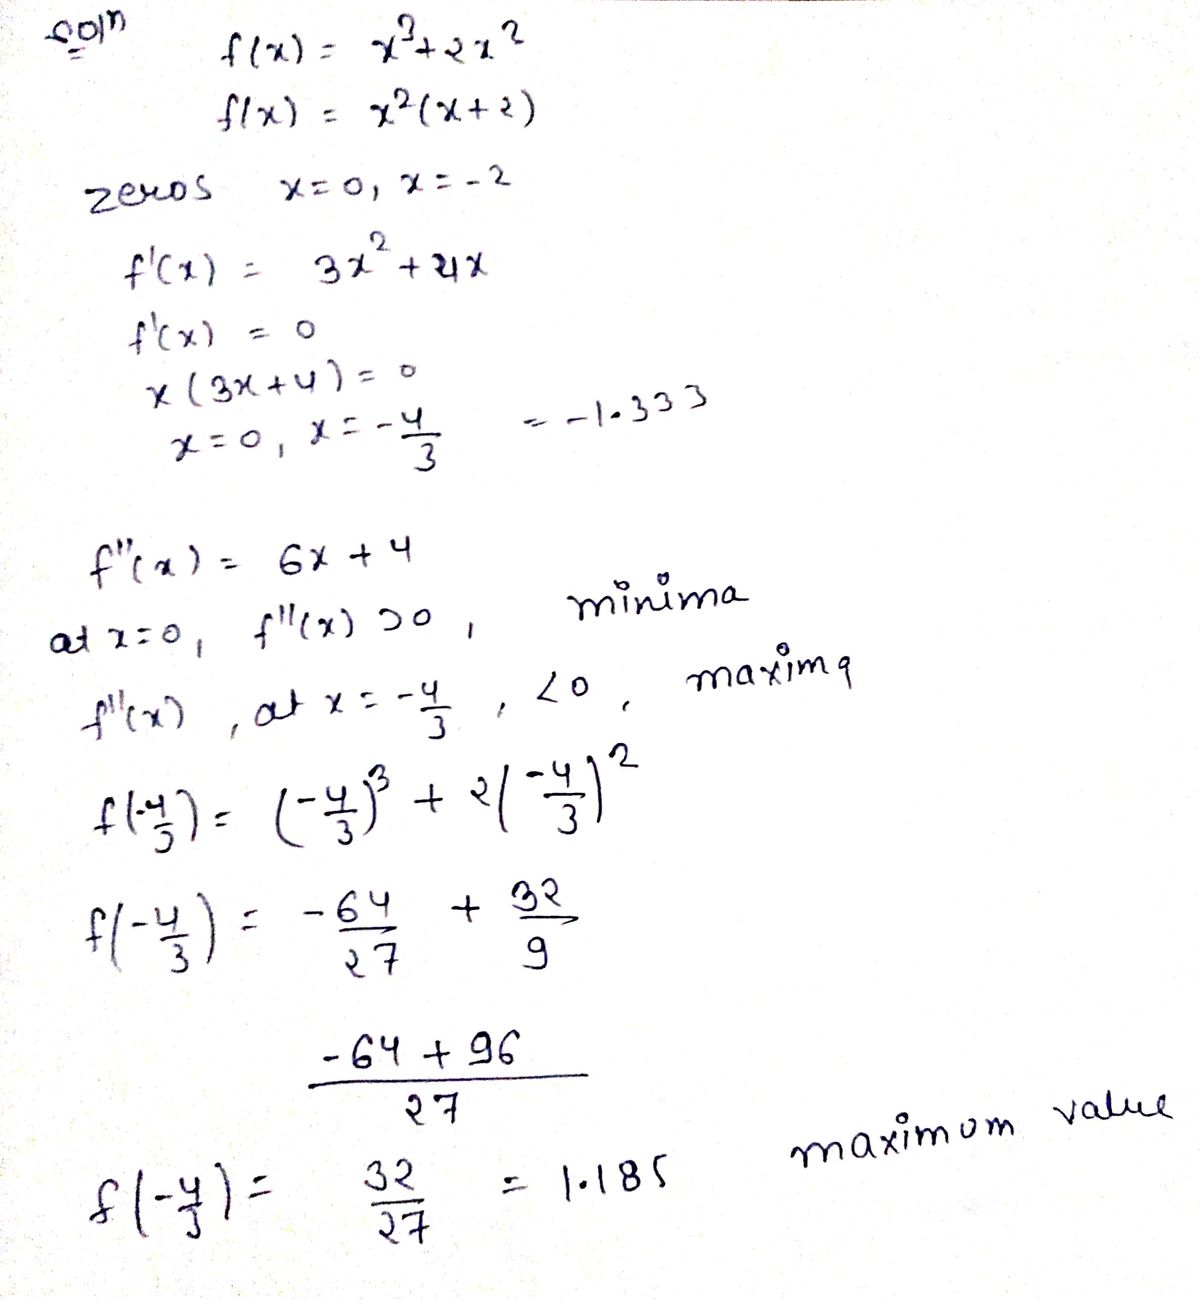 Soln
f(x) = x³+2x²
f(x) = x²(x+2)
zeros x=0, x=-2
f'(x) = 3x²+4x
f'(x) = 0
x(3x+4)=0
x=0, x=-4/3 = -1.333
f''(x) = 6x+4
at x=0, f''(x) >0, minima
f''(x), at x=-4/3, <0, maxima
f(-4/3) = (-4/3)³ + 2(-4/3)²
f(-4/3) = -64/27 + 32/9
-64+96
27
f(-4/3) = 32/27 = 1.185 maximum value